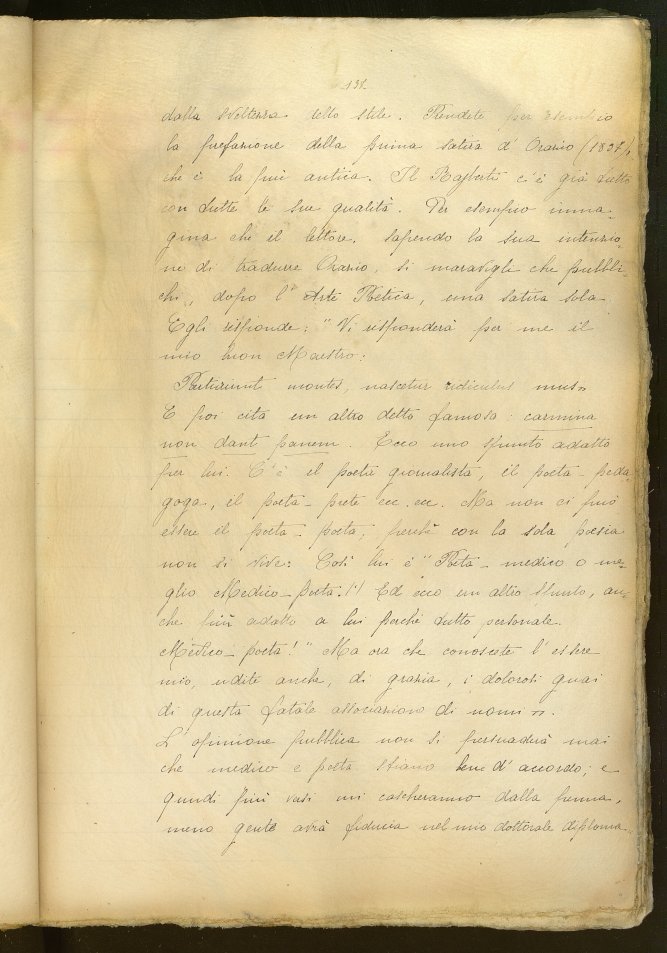 131.
dalla sveltezza dello stile. Prendete per esempio
la prefazione della prima satira d' Orazio (1837),
che è la più antica. Il Rajberti c'è già tutto
con tutte le sue qualità. Per esempio imma-
gina che il lettore, sapendo la sua intenzio-
ne di tradurre Orazio, si maravigli che pubbli-
chi, dopo l' Arte Poetica, una satira sola
Egli risponde: "Vi risponderà per me il
mio buon Maestro:
Parturiunt montes, nascetur ridiculus mus"
E poi cita un altro detto famoso: carmina
non dant panem. Ecco uno spunto adatto
per lui. C'è il poeta giornalista, il poeta peda-
gogo, il poeta-prete ecc. ecc. Ma non ci può
essere il poeta-poeta, perchè con la sola poesia
non si vive: Così lui è "Poeta-medico o me-
glio Medico-poeta!!! Ed ecco un altro spunto, an-
che più adatto a lui perchè tutto personale.
Medico-poeta!" Ma ora che conoscete l' essere
mio, udite anche, di grazia, i dolorosi guai
di questa fatale associazione di nomi".
L' opinione pubblica non si persuaderà mai
che medico e poeta stiano bene d' accordo; e
quindi più versi mi cascheranno dalla penna,
meno gente avrà fiducia nel mio dottorale diploma.